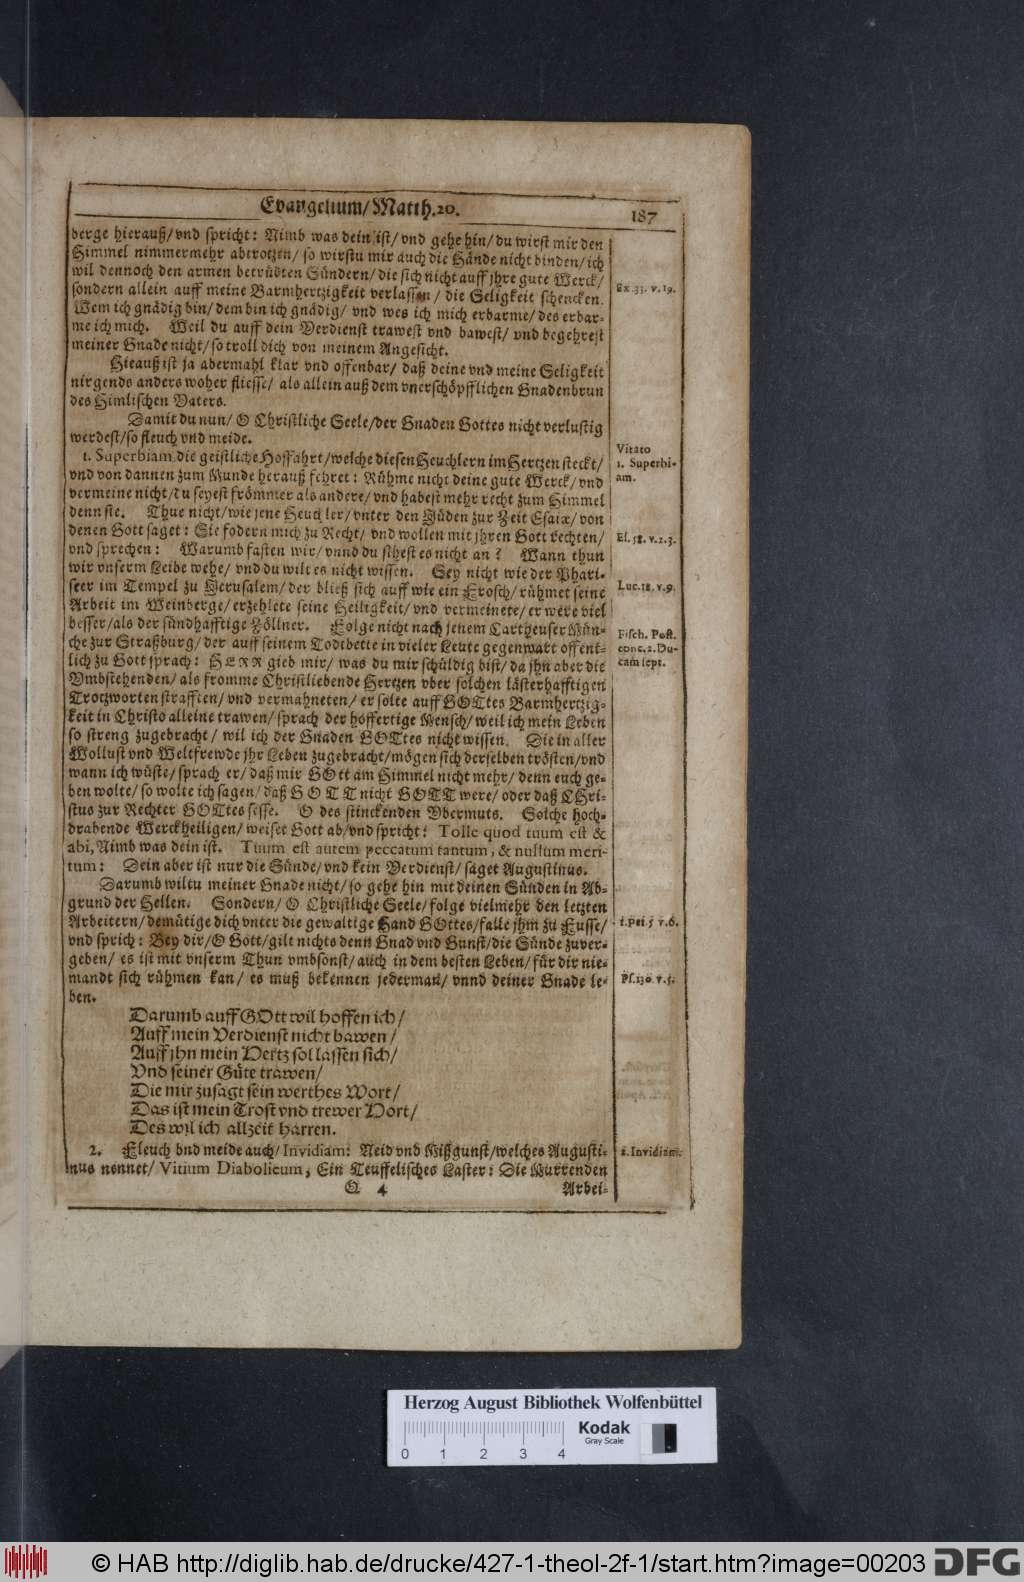 Evangelium/ Matth. 20.
187
berge hierauß/ vnd spricht: Nimb was dein ist/ vnd gehe hin/ du wirst mir den
Himmel nimmermehr abtrotzen/ so wirstu mir auch die Hände nicht binden/ ich
wil dennoch den armen betrübten Sündern/ die sich nicht auff jhre gute Werck/
sondern allein auff meine Barmhertzigkeit verlassen/ die Seligkeit schencken.
Wem ich gnädig bin/ dem bin ich gnädig/ vnd wes ich mich erbarme/ des erbar-
me ich mich. Weil du auff dein Verdienst trawest vnd bawest/ vnd begehrest
meiner Gnade nicht/ so troll dich von meinem Angesicht.
Hieauß ist ja abermahl klar vnd offenbar/ daß deine vnd meine Seligkeit
nirgends anders woher fliesse/ als allein auß dem vnerschöpfflichen Gnadenbrun
des Himlischen Vaters.
Damit du nun/ O Christliche Seele/ der Gnaden Gottes nicht verlustig
werdest/ so fleuch vnd meide.
1. Superbiam, die geistliche Hoffahrt/ welche diesen Heuchlern im Hertzen steckt/
vnd von dannen zum Munde herauß fehret: Rühme nicht deine gute Werck/ vnd
vermeine nicht/ du seyest frömmer als andere/ vnd habest mehr recht zum Himmel
denn sie. Thue nicht/ wie jene Heuchler/ vnter den Jüden zur Zeit Esaiæ/ von
denen Gott saget: Sie fodern mich zu Recht/ vnd wollen mit jhren Gott rechten/
vnd sprechen: Warumb fasten wir/ vnnd du sihest es nicht an? Wann thun
wir vnserm Leibe wehe/ vnd du wilt es nicht wissen. Sey nicht wie der Phari-
seer im Tempel zu Jerusalem/ der bließ sich auff wie ein Frosch/ rühmet seine
Arbeit im Weinberge/ erzehlete seine Heiligkeit/ vnd vermeinete/ er were viel
besser/ als der sündhafftige Zöllner. Folge nicht nach jenem Cartheuser Mün-
che zur Straßburg/ der auff seinem Todtbette in vieler Leute gegenwart öffent-
lich zu Gott sprach: HERR gieb mir/ was du mir schüldig bist/ da jhn aber die
Vmbstehenden/ als fromme Christliebende Hertzen vber solchen lästerhafftigen
Trotzworten strafften/ vnd vermahneten/ er solte auff GOttes Barmhertzig-
keit in Christo alleine trawen/ sprach der hoffertige Mensch/ weil ich mein Leben
so streng zugebracht/ wil ich der Gnaden GOttes nicht wissen. Die in aller
Wollust vnd Weltfrewde jhr Leben zugebracht/ mögen sich derselben trösten/ vnd
wann ich wüste/ sprach er/ daß mir GOtt am Himmel nicht mehr/ denn euch ge-
ben wolte/ so wolte ich sagen/ daß GOTT nicht GOTT were/ oder daß CHri-
stus zur Rechter GOttes sesse. O des stinckenden Vbermuts. Solche hoch-
drabende Werckheiligen/ weiset Gott ab/ vnd spricht: Tolle quod tuum est &
abi, Nimb was dein ist. Tuum est autem peccatum tantum, & nullum meri-
tum: Dein aber ist nur die Sünde/ vnd kein Verdienst/ saget Augustinus.
Darumb wiltu meiner Gnade nicht/ so gehe hin mit deinen Sünden in Ab-
grund der Hellen. Sondern/ O Christliche Seele/ folge vielmehr den letzten
Arbeitern/ demütige dich vnter die gewaltige Hand GOttes/ falle jhm zu Fusse/
vnd sprich: Bey dir/ O Gott/ gilt nichts denn Gnad vnd Gunst/ die Sünde zuver-
geben/ es ist mit vnserm Thun vmbsonst/ auch in dem besten Leben/ für dir nie-
mandt sich rühmen kan/ es muß bekennen jederman/ vnnd deiner Gnade le-
ben.
Darumb auff GOtt wil hoffen ich/
Auff mein Verdienst nicht bawen/
Auff jhn mein Hertz sol lassen sich/
Vnd seiner Güte trawen/
Die mir zusagt sein werthes Wort/
Das ist mein Trost vnd trewer Hort/
Des wil ich allzeit harren.
2. Fleuch vnd meide auch/ Invidiam: Neid vnd Mißgunst/ welches Augusti-
nus nennet/ Vitium Diabolicum, Ein Teuffelisches Laster: Die Murrenden
Q 4
Arbei-
Ex. 33. v. 19.
Vitato
1. Superbi-
am.
Es. 58. v. 2. 3.
Luc. 18. v. 9.
Fisch. Post.
conc. 2. Du-
cam sept.
1. Pet. 5 v. 6.
Ps. 130 v. 5.
2. Invidiam.
Herzog August Bibliothek Wolfenbüttel
Kodak
Gray Scale
0 1 2 3 4
© HAB http://diglib.hab.de/drucke/427-1-theol-2f-1/start.htm?image=00203
DFG